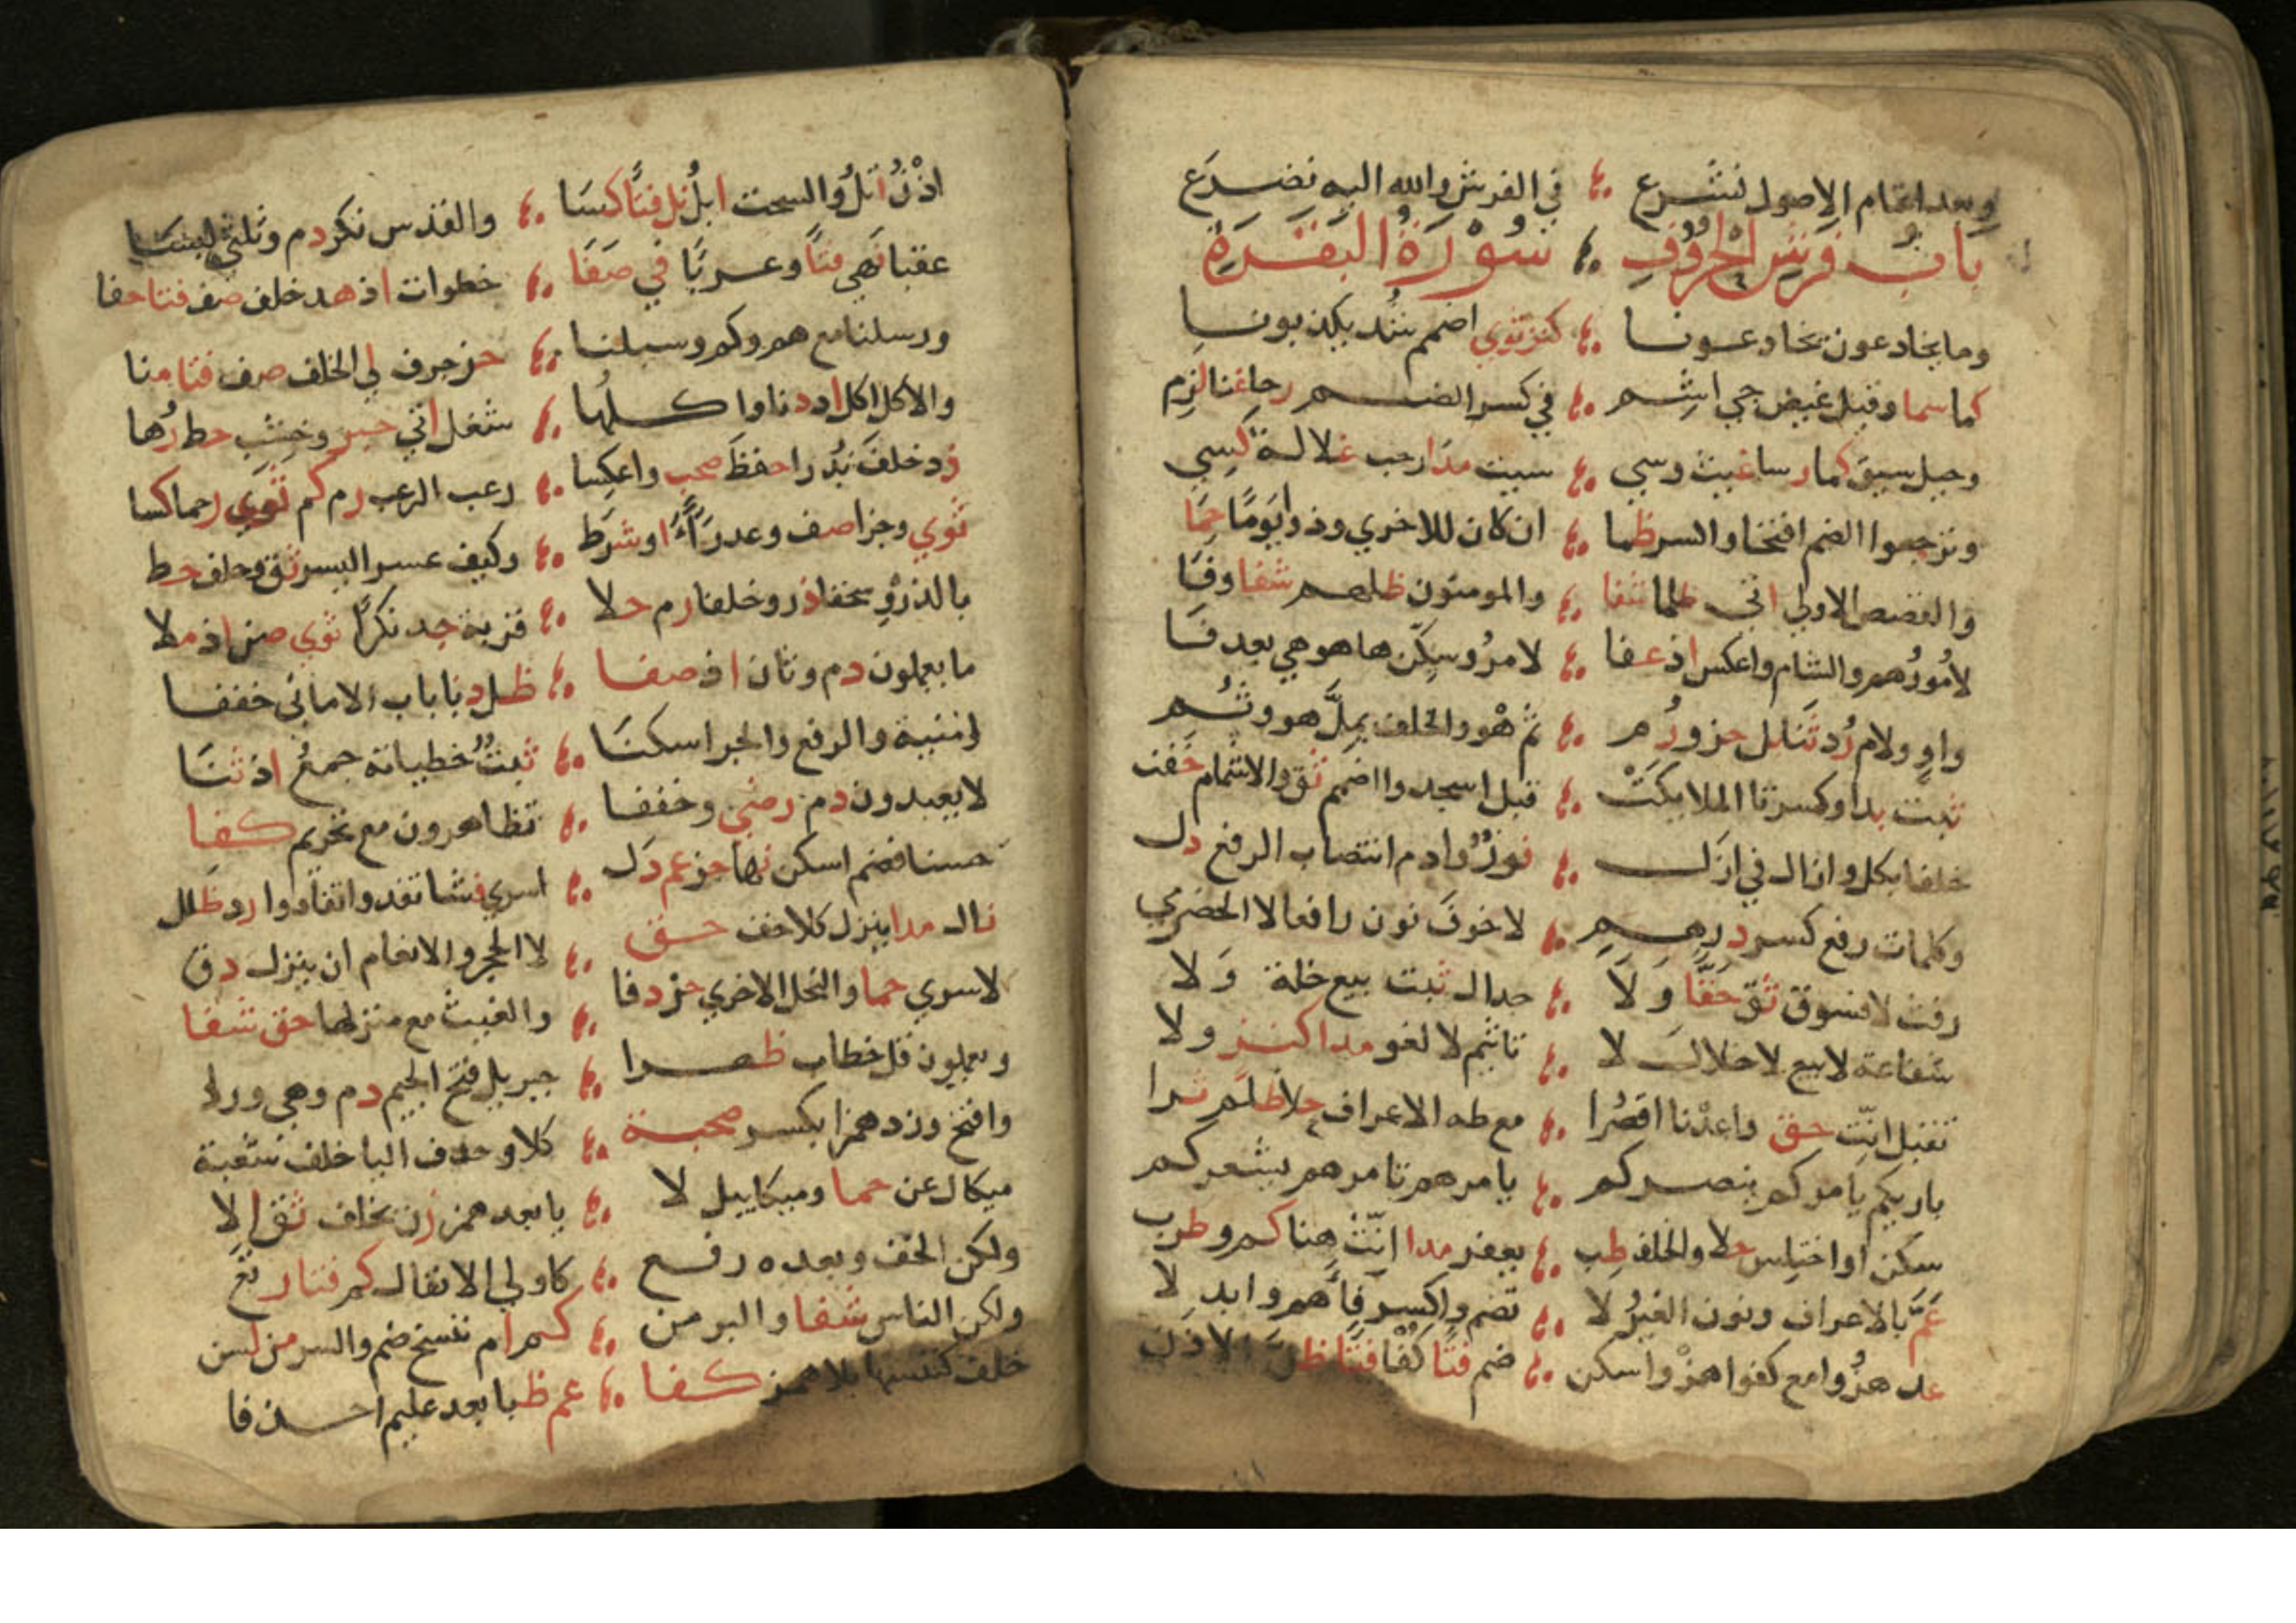 وبعد اتمام الاصول نشرع ؞ في الفرش والله اليه نضرع
باب فرش الحروف ؞ سورة البقرة
وما يخادعون يخادعونا ؞ كنز ثوي اضمم شد يكذبونا
كما سما وقيل غيض جي اشم ؞ في كسر الضم رجا غنا لزم
وحيل سيق كم رسا غيث وسي ؞ سيت مدا رحب غلالة كسي
وترجعوا الضم افتحا واكسر ظما ؞ ان كان للاخري وذو يوما حما
والقصص الاولي اتي ظلما شفا ؞ والمومنون ظلهم شفا وفا
لامور هم والشام واعكس اذ عفا ؞ لامر وسكن ها هو هي بعد فا
واو ولام رد ثنا بل حز ورم ؞ ثم هو والخلف يمل هو وثم
ثبت بدا وكسر تا الملايكت ؞ قبل اسجدوا اضمم ثق والاشمام خفت
خلفا بكل وازال في ازل ؞ فوز وادم انتصاب الرفع دل
وكلمات رفع كسر درهم ؞ لا خوف نون رافعا لا الحضرمي
رفث لا فسوق ثق حقا ولا ؞ جدال ثبت بيع خلة ولا
شفاعة لا بيع لا خلال لا ؞ تاثيم لا لغو مدا كنز ولا
تقبل انث حق واعدنا اقصرا ؞ مع طه الاعراف حلا ظلم ثرا
باريكم يامركم ينصركم ؞ يامرهم تامرهم يشعركم
سكن او اختلس حلا والخلف طب ؞ يغفر مدا انث هنا كم وظرب
عم بالاعراف ونون الغير لا ؞ تضم واكسر فاءهم وابدلا
عد هزوا مع كفوا هزوا اسكن ؞ ضم فتا كفا فتا ظن الاذن
اذن اتل والسحت ابل نل فتا كسا ؞ والقدس نكر دم وثلثي لبسا
عقبا نهي فتا وعربا في صفا ؞ خطوات اذ هد خلف صف فتا حفا
ورسلنا مع هم وكم وسبلنا ؞ حز جرف لي الخلف صف فتا منا
والاكل اكل اذ دنا واكلها ؞ شغل اتي حبر وخشب حط رها
زد خلف نذرا حفظ صحب واعكسا ؞ رعب الرعب رم كم ثوي رحما كسا
ثوي وجزا صف وعذرا او شرط ؞ وكيف عسر اليسر ثق وخلف خط
بالذرو سحقا ذر وخلفا رم حلا ؞ قربة جد نكرا ثوي صن اذ ملا
ما يعملون دم وثان اذ صفا ؞ ظل دنا باب الاماني خففا
امنية والرفع والجر اسكنا ؞ ثبت خطياته جمع اذ ثنا
لا يعبدون دم رضي وخففا ؞ تظاهرون مع تحريم كفا
حسنا فضم اسكن نها حز عم دل ؞ اسري فشا تفدو تفادوا رد ظلل
نال مدا ينزل كلا خف حق ؞ لا الحجر والانعام ان ينزل دق
لاسري حما والنحل الاخري حز دفا ؞ والغيث مع منزلها حق شفا
ويعملون قل خطاب ظهرا ؞ جبريل فتح الجيم دم وهي ورا
وافتح وزد همزا بكسر صحبة ؞ كلا وحذف اليا خلف شعبة
ميكال عن حما وميكاييل لا ؞ يا بعد همز زن بخلف ثق الا
ولكن الخف وبعده رفع ؞ كاولي الانفال كم فتا رتع
ولكن الناس شفا والبر من ؞ كم ام ننسخ ضم واكسر من لسن
خلف كننسها بلا همز كفا ؞ عم ظبا بعد عليم احذفا